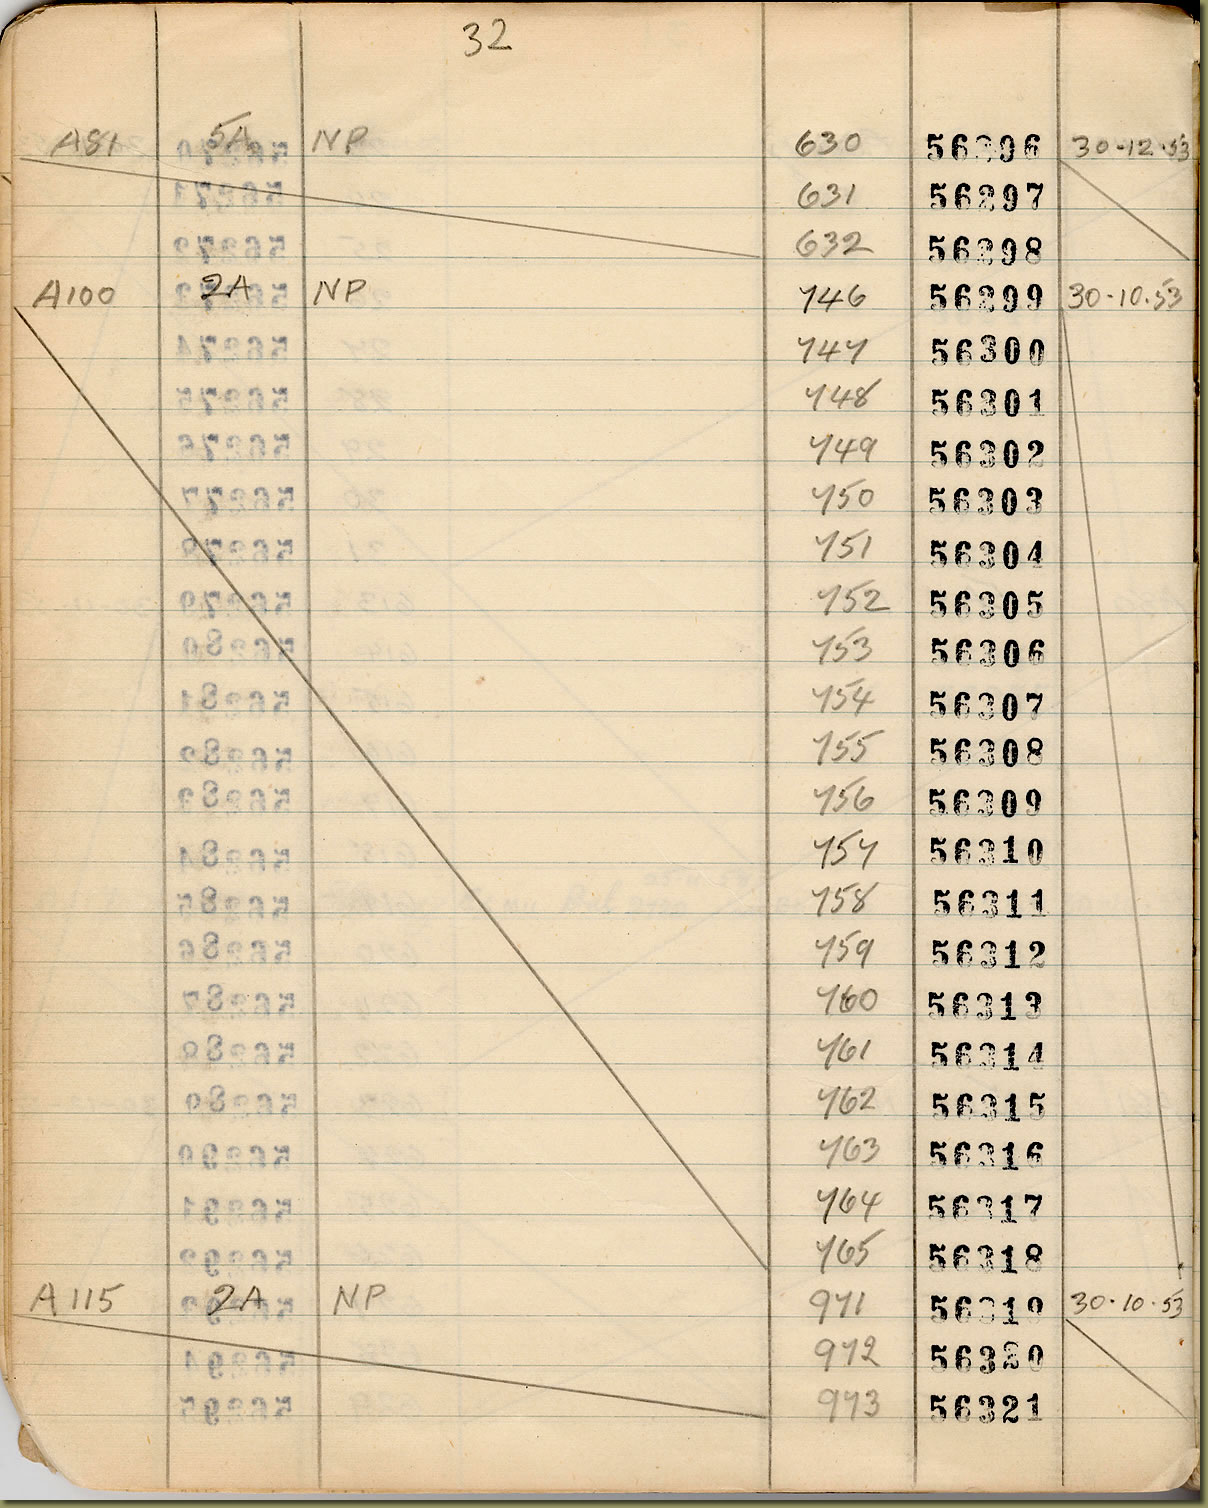 32
A81 5A NP 630 56296 30-12-53
631 56297
632 56298
A100 2A NP 746 56299 30-10-53
747 56300
748 56301
749 56302
750 56303
751 56304
752 56305
753 56306
754 56307
755 56308
756 56309
757 56310
758 56311
759 56312
760 56313
761 56314
762 56315
763 56316
764 56317
765 56318
A115 2A NP 971 56319 30-10-53
972 56320
973 56321